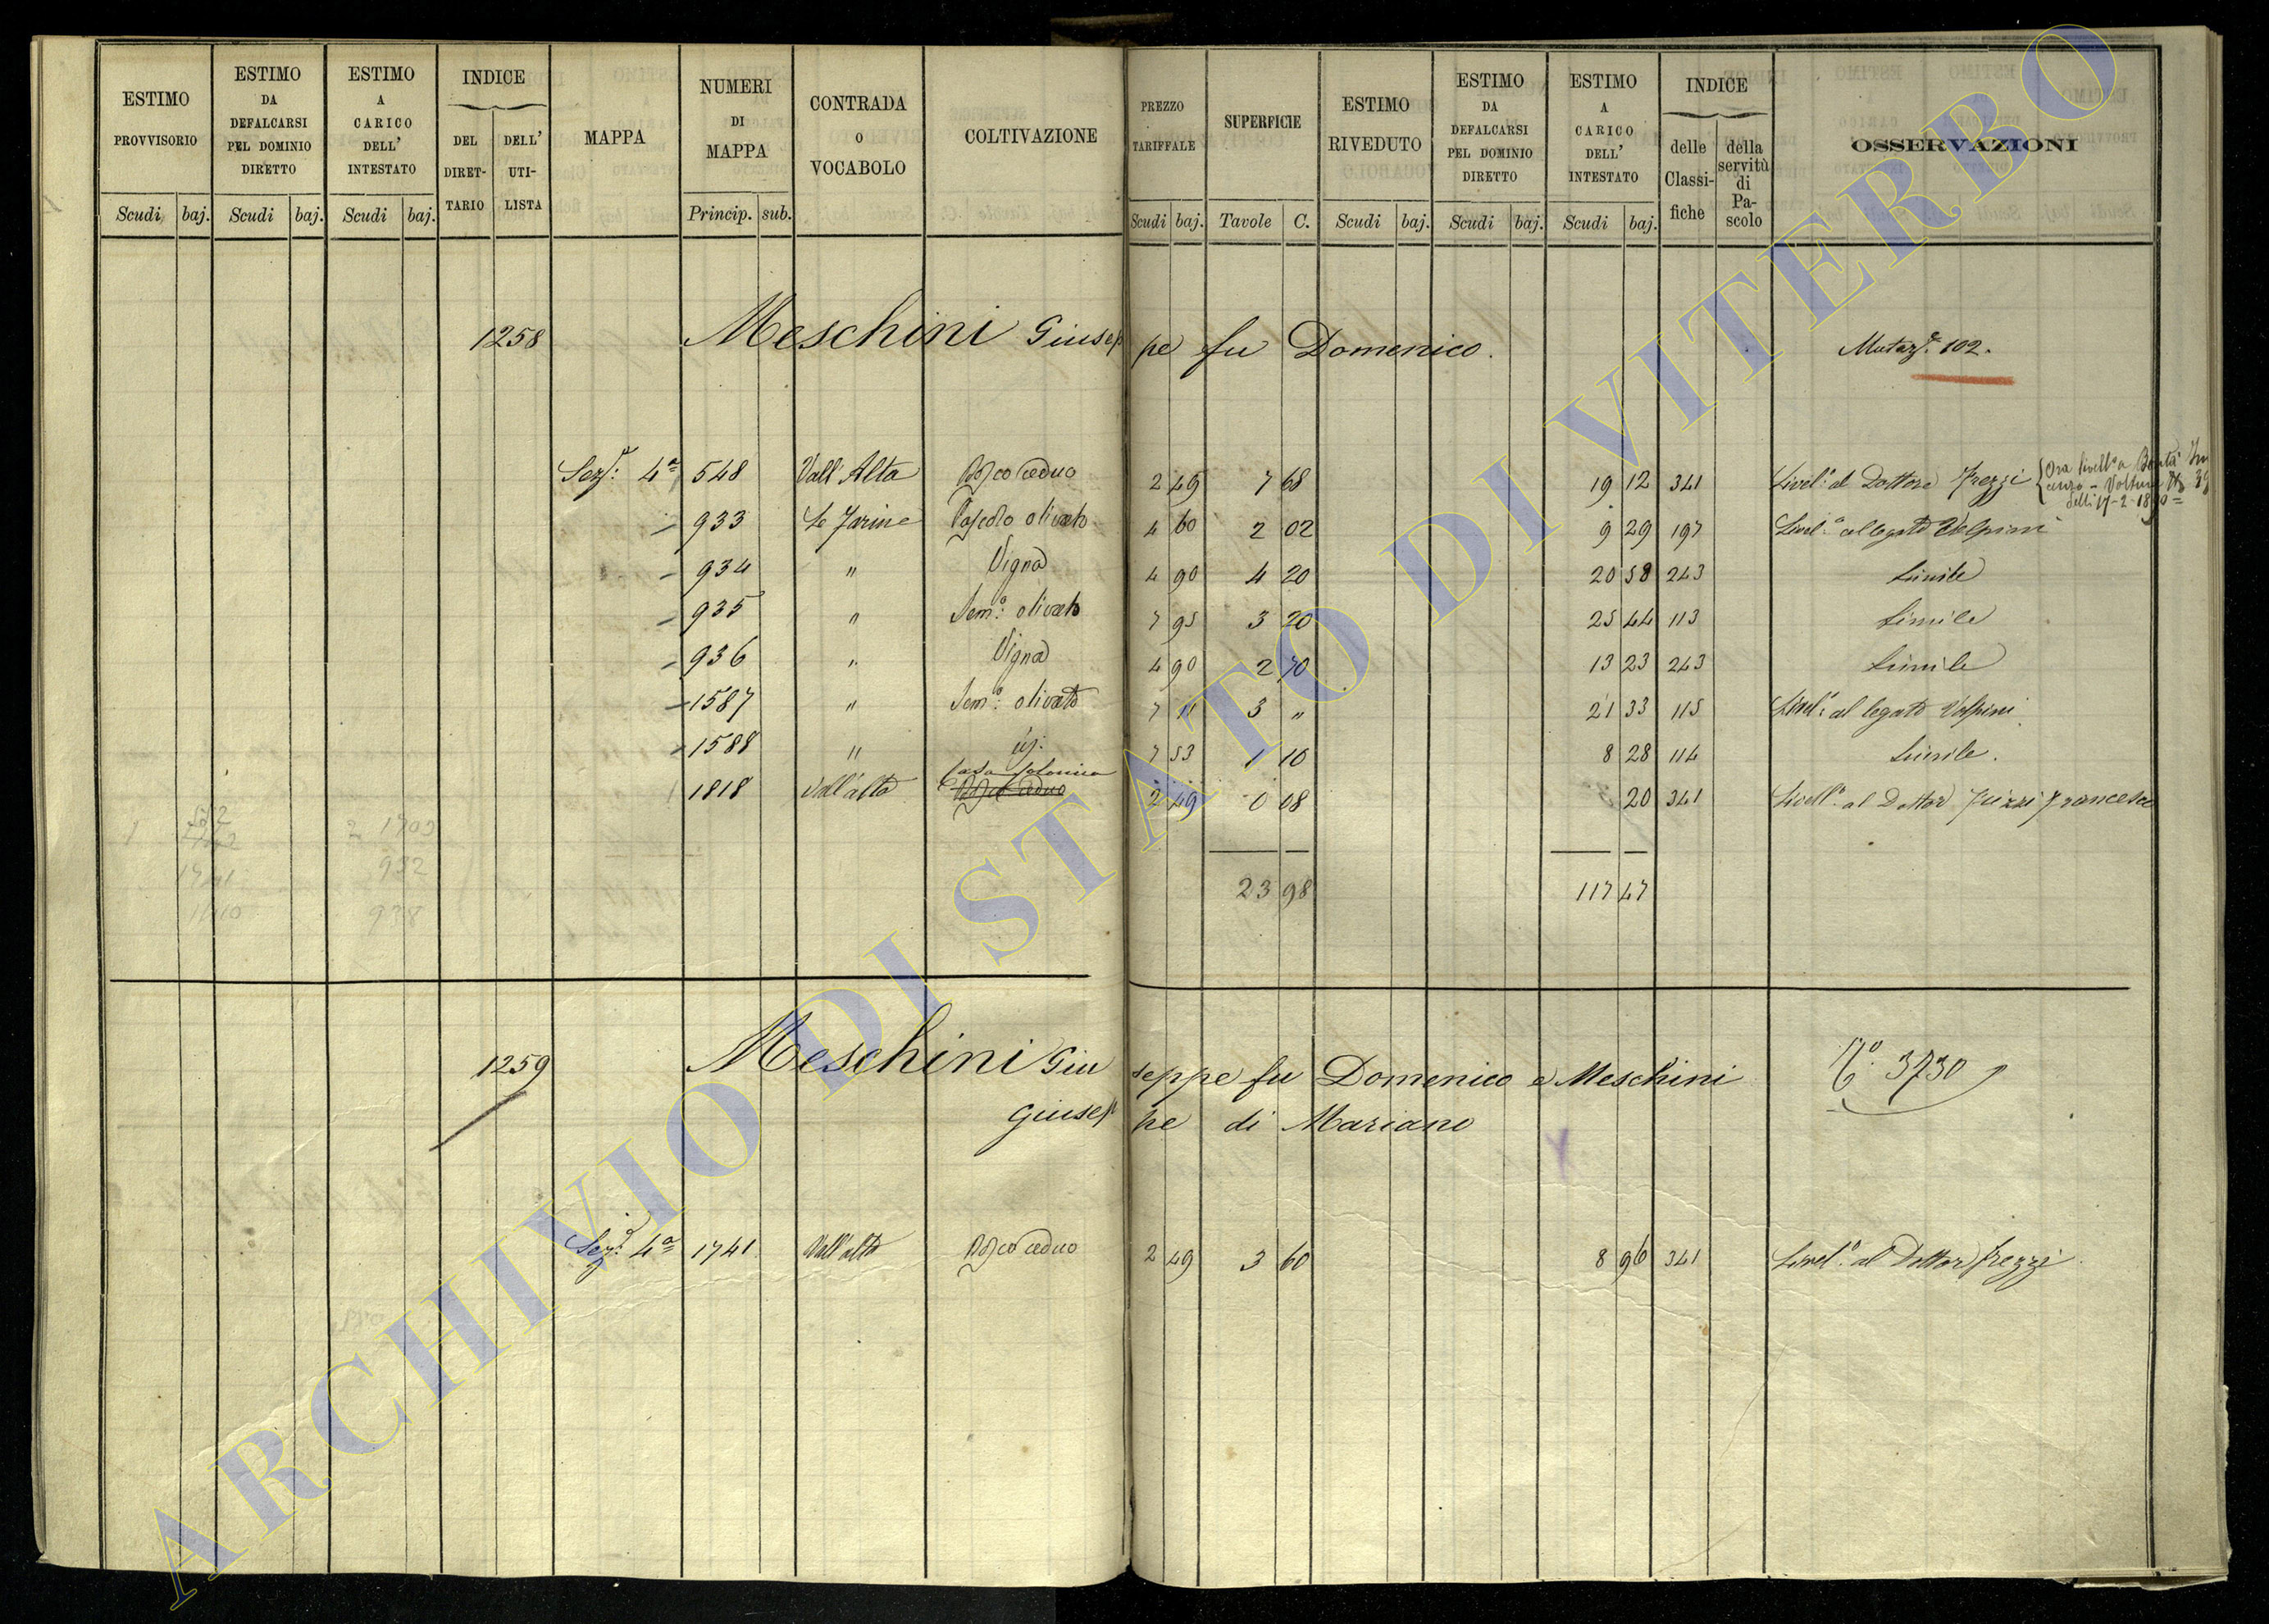 ESTIMO PROVVISORIO Scudi baj.
ESTIMO DA DEFALCARSI PEL DOMINIO DIRETTO Scudi baj.
ESTIMO A CARICO DELL' INTESTATO Scudi baj.
INDICE DEL DIRET-TARIO DELL' UTI-LISTA
MAPPA
NUMERI DI MAPPA Princip. sub.
CONTRADA O VOCABOLO
COLTIVAZIONE
PREZZO TARIFFALE Scudi baj.
SUPERFICIE Tavole C.
ESTIMO RIVEDUTO Scudi baj.
ESTIMO DA DEFALCARSI PEL DOMINIO DIRETTO Scudi baj.
ESTIMO A CARICO DELL' INTESTATO Scudi baj.
INDICE delle Classi-fiche della servitù di Pa-scolo
OSSERVAZIONI
1258 Meschini Giusep pe fu Domenico. 102.
Sez.e 4a 548 Vall'Alta Bosco ceduo 2 49 7 68 19 12 341 Livel.o al Dottore Frezzi
933 Le Farine Pascolo olivato 4 60 2 02 9 29 197 Livel.o al legato Volpini
934 " Vigna 4 90 4 20 20 58 243 Simile
935 " Sem.o olivato 7 95 3 20 25 44 113 Simile
936 " Vigna 4 90 2 70 13 23 243 Simile
1587 " Sem.o olivato 7 11 3 " 21 33 115 Livel.o al legato Volpini
1588 " id. 7 53 1 10 8 28 114 Simile.
Casa colonica
1818 Vall'alta Bosco ceduo 2 49 0 08 20 341 Livell.o al Dottor Frezzi Francesco
23 98 117 47
932
1741
1259 Meschini Giu seppe fu Domenico e Meschini No. 3730
Giusep pe di Mariano
Sez.e 4a 1741 Vall'alta Bosco ceduo 2 49 3 60 8 96 341 Livel.o al Dottor Frezzi
ARCHIVIO DI STATO DI VITERBO